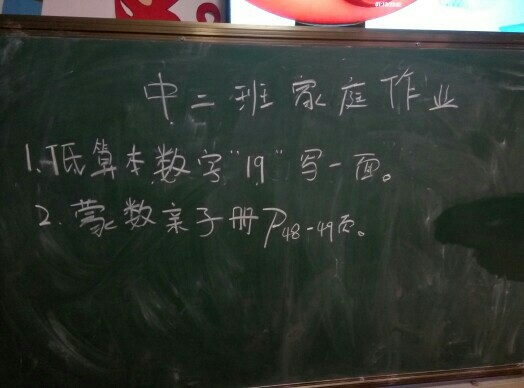 中二班家庭作业
1.低算本数字"19"写一面。
2.蒙数亲子册P48-49页。